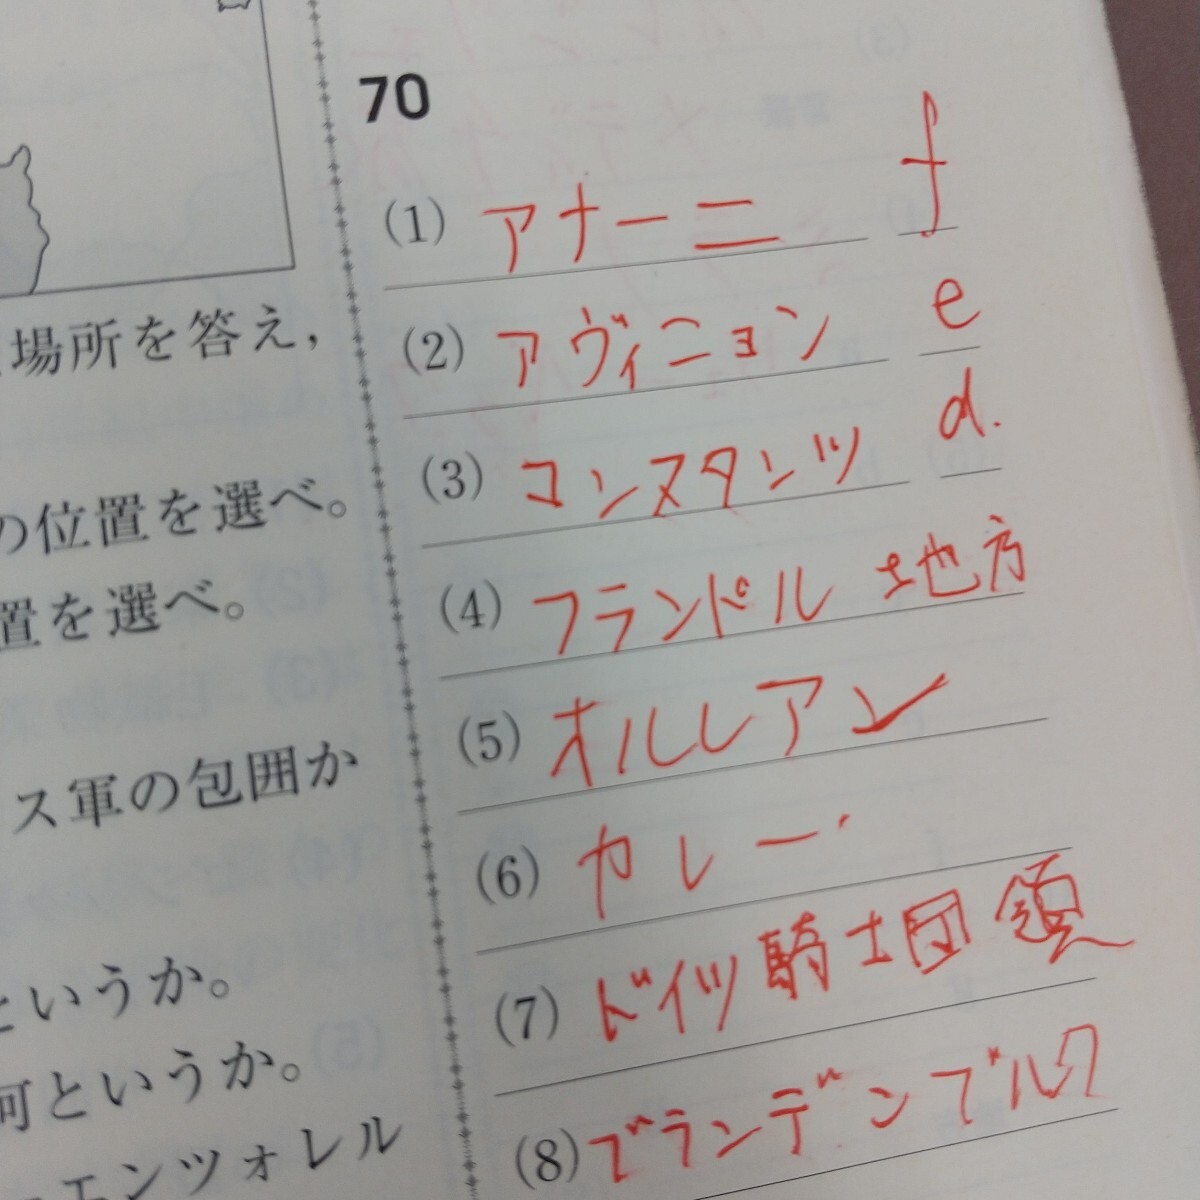 場所を答え，
の位置を選べ。
置を選べ。
ス軍の包囲か
というか。
何というか。
エンツォレル
70
(1) アナーニ f
(2) アヴィニョン e
(3) コンスタンツ d.
(4) フランドル 地方
(5) オルレアン
(6) カレー
(7) ドイツ騎士団領
(8) ブランデンブルク